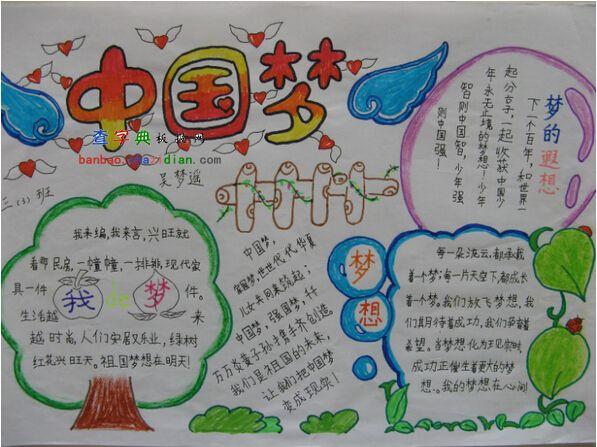 中国梦
查字典板报网
banbao.chazidian.com
吴梦遥
三(3)班
梦的遐想
下一个百年,和世界一
起分享,一起收获中国少
年永无止境的梦想!少年
智则中国智,少年强
则中国强!
我来编,我来言,兴旺就
看那民房,一幢幢,一排排,现代家
具一件 件。
生活越 来
我de梦
越时尚,人们安居乐业,绿树
红花兴旺天。祖国梦想在明天!
中国梦,
家国梦,世世代代华夏
儿女共同来筑起,
中国梦,强国梦,千千
万万炎黄子孙携手齐创造
我们是祖国的未来,
让我们把中国梦
变成现实!
梦想
每一朵流云,都承载
着个梦;每一片天空下,都成长
着个梦。我们放飞梦想,我
们期待着成功,我们孕育着
希望。当梦想化为王见实时,
成功正催生着更大的梦
想。我的梦想在心间!